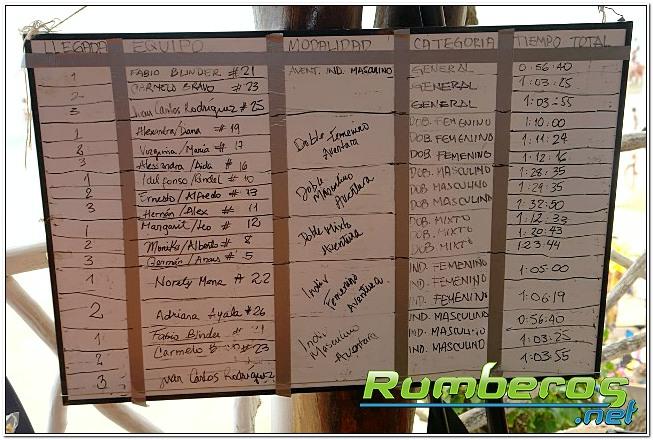 LLEGADA EQUIPO MODALIDAD CATEGORIA TIEMPO TOTAL
1 FABIO BLINDER #21 AVENT. IND. MASCULINO GENERAL 0:56:40
2 CARMELO BRAVO #23 GENERAL 1:03:25
3 Juan Carlos Rodriguez #25 GENERAL 1:03:55
1 Alexandra/Diana #19 DOB. FEMENINO 1:10:00
María #17 Doble Femenino Aventura DOB. FEMENINO 1:11:24
3 Alessandra/Aida #16 DOB. FEMENINO 1:12:16
1 DOB. MASCULINO 1:28:35
2 Ernesto/Alfredo Doble Masculino Aventura DOB MASCULINO 1:29:35
3 Hernán/Alex #11 DOB. MASCULINO 1:32:50
1 Margarit/Leo #12 DOB. MIXTO 1:12:33
2 Alberto #8 Doble Mixto Aventura DOB. MIXTO 1:20:43
3 Germán/Anais #5 DOB. MIXTO 1:23:44
1 Norely Mena #22 IND. FEMENINO 1:05:00
Indiv Femenino Aventura IND. FEMENINO
2 Adriana Ayala #26 FEMENINO 1:06:19
1 Fabio Blinder #21 IND. MASCULINO 0:56:40
2 Carmelo #23 Indi. Masculino Aventura IND. MASCULINO 1:03:25
3 Juan Carlos Rodriguez IND. MASCULINO 1:03:55
Rumberos
.net